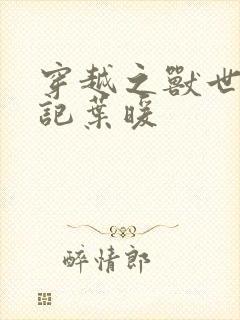 穿越之獸世
記葉暖
醉情郎